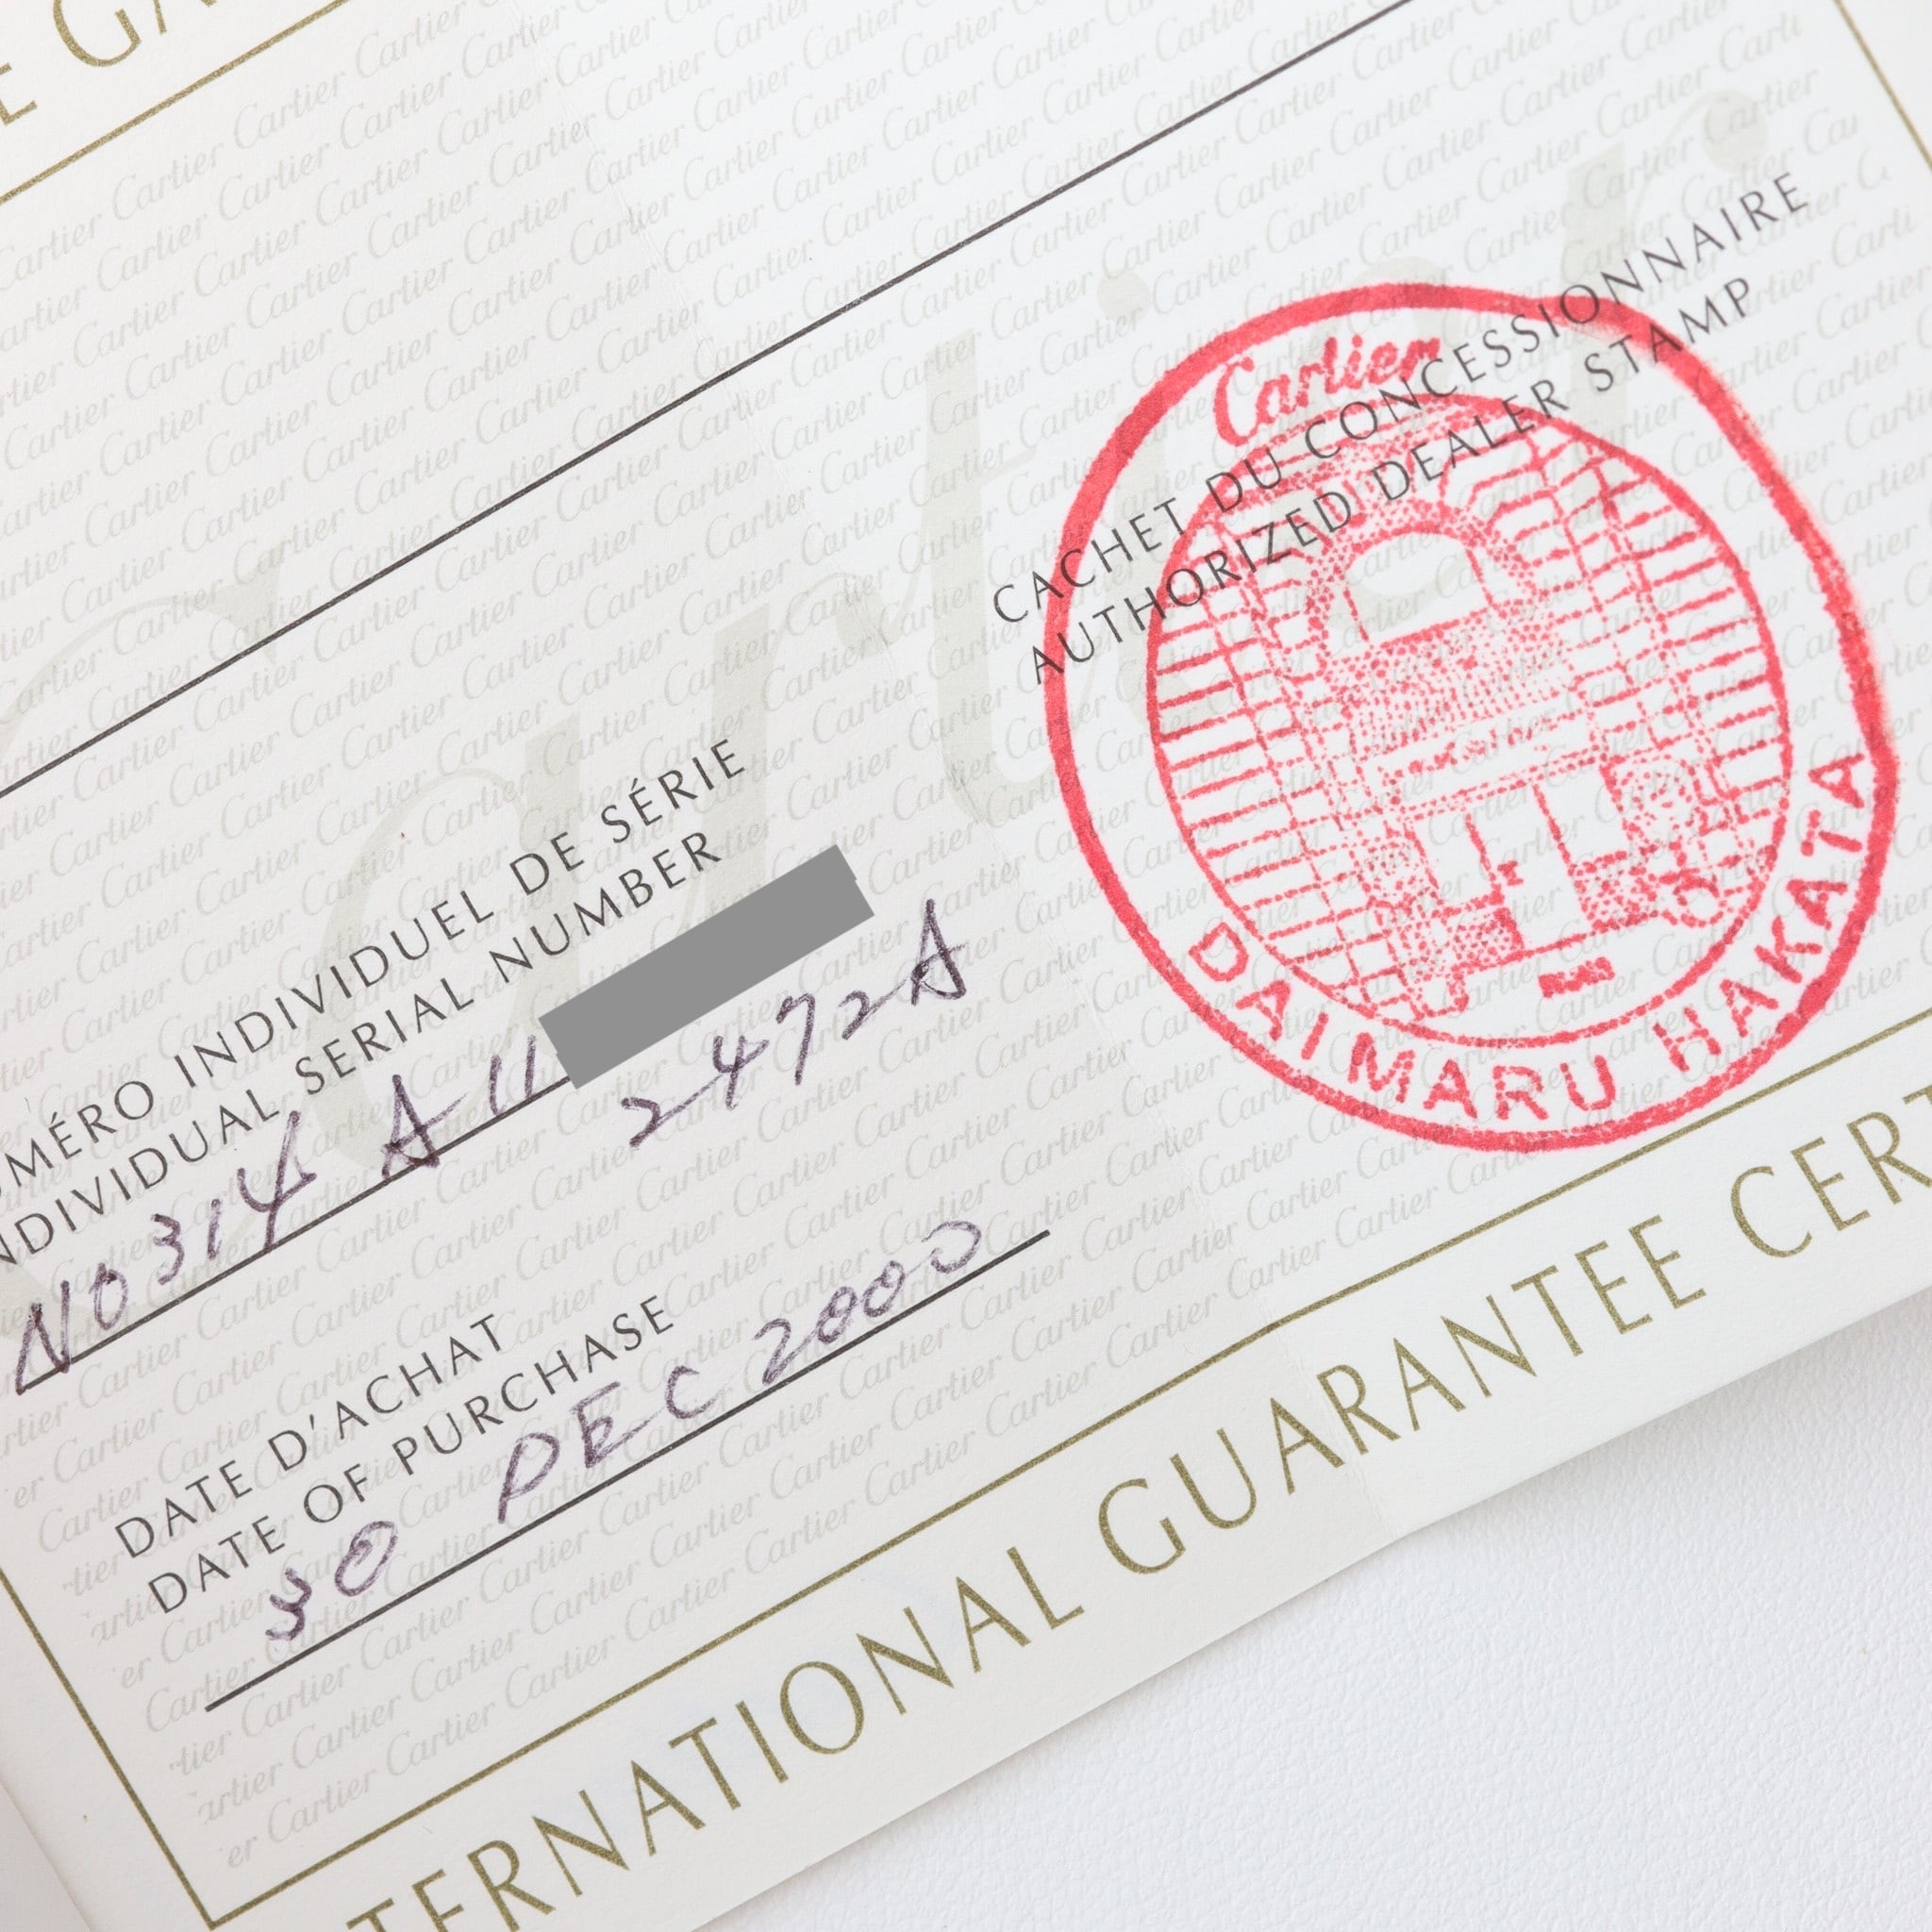 E GA
CACHET DU CONCESSIONNAIRE
AUTHORIZED DEALER STAMP
Cartier
DAIMARU HAKATA
UMÉRO INDIVIDUEL DE SÉRIE
NDIVIDUAL SERIAL NUMBER
N0314 A 11
2472A
DATE D'ACHAT
DATE OF PURCHASE
30 DEC 2000
TERNATIONAL GUARANTEE CERT
Cartier